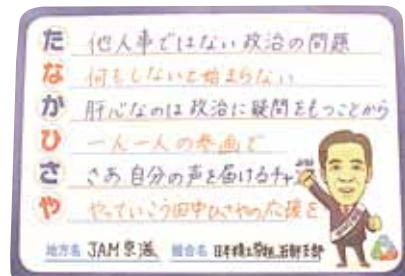 た 他人事ではない政治の問題
な 何もしないと始まらない
か 肝心なのは政治に疑問をもつことから
ひ 一人一人の参画で
さ さあ自分の声を届けるチャンス
や やっていこう田中ひさやの応援を
地方名 JAM京滋 組合名 日本精工労組 石部支部